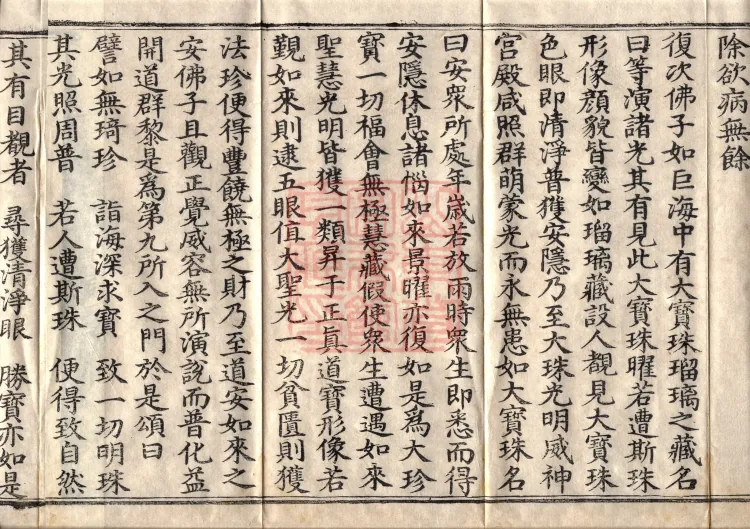 除欲病無餘
復次佛子如巨海中有大寶珠瑠璃之藏名
曰等演諸光其有見此大寶珠曜若遭斯珠
形像顔貌皆變如瑠璃藏設人覩見大寶珠
色眼即清淨普獲安隱乃至大珠光明威神
宮殿咸照群萌蒙光而永無患如大寶珠名
曰安衆所處年歲若放雨時衆生即悉而得
安隱休息諸惱如來景曜亦復如是爲大珍
寶一切福會無極慧藏假使衆生遭遇如來
聖慧光明皆獲一類昇于正真道寶形像若
覲如來則逮五眼值大聖光一切貧匱則獲
法珍便得豐饒無極之財乃至道安如來之
安佛子且觀正覺威容無所演說而普化益
開道群黎是爲第九所入之門於是頌曰
譬如無琦珍　詣海深求寶　致一切明珠
其光照周普　若人遭斯珠　便得致自然
其有目覩者　尋獲清淨眼　勝寶亦如是